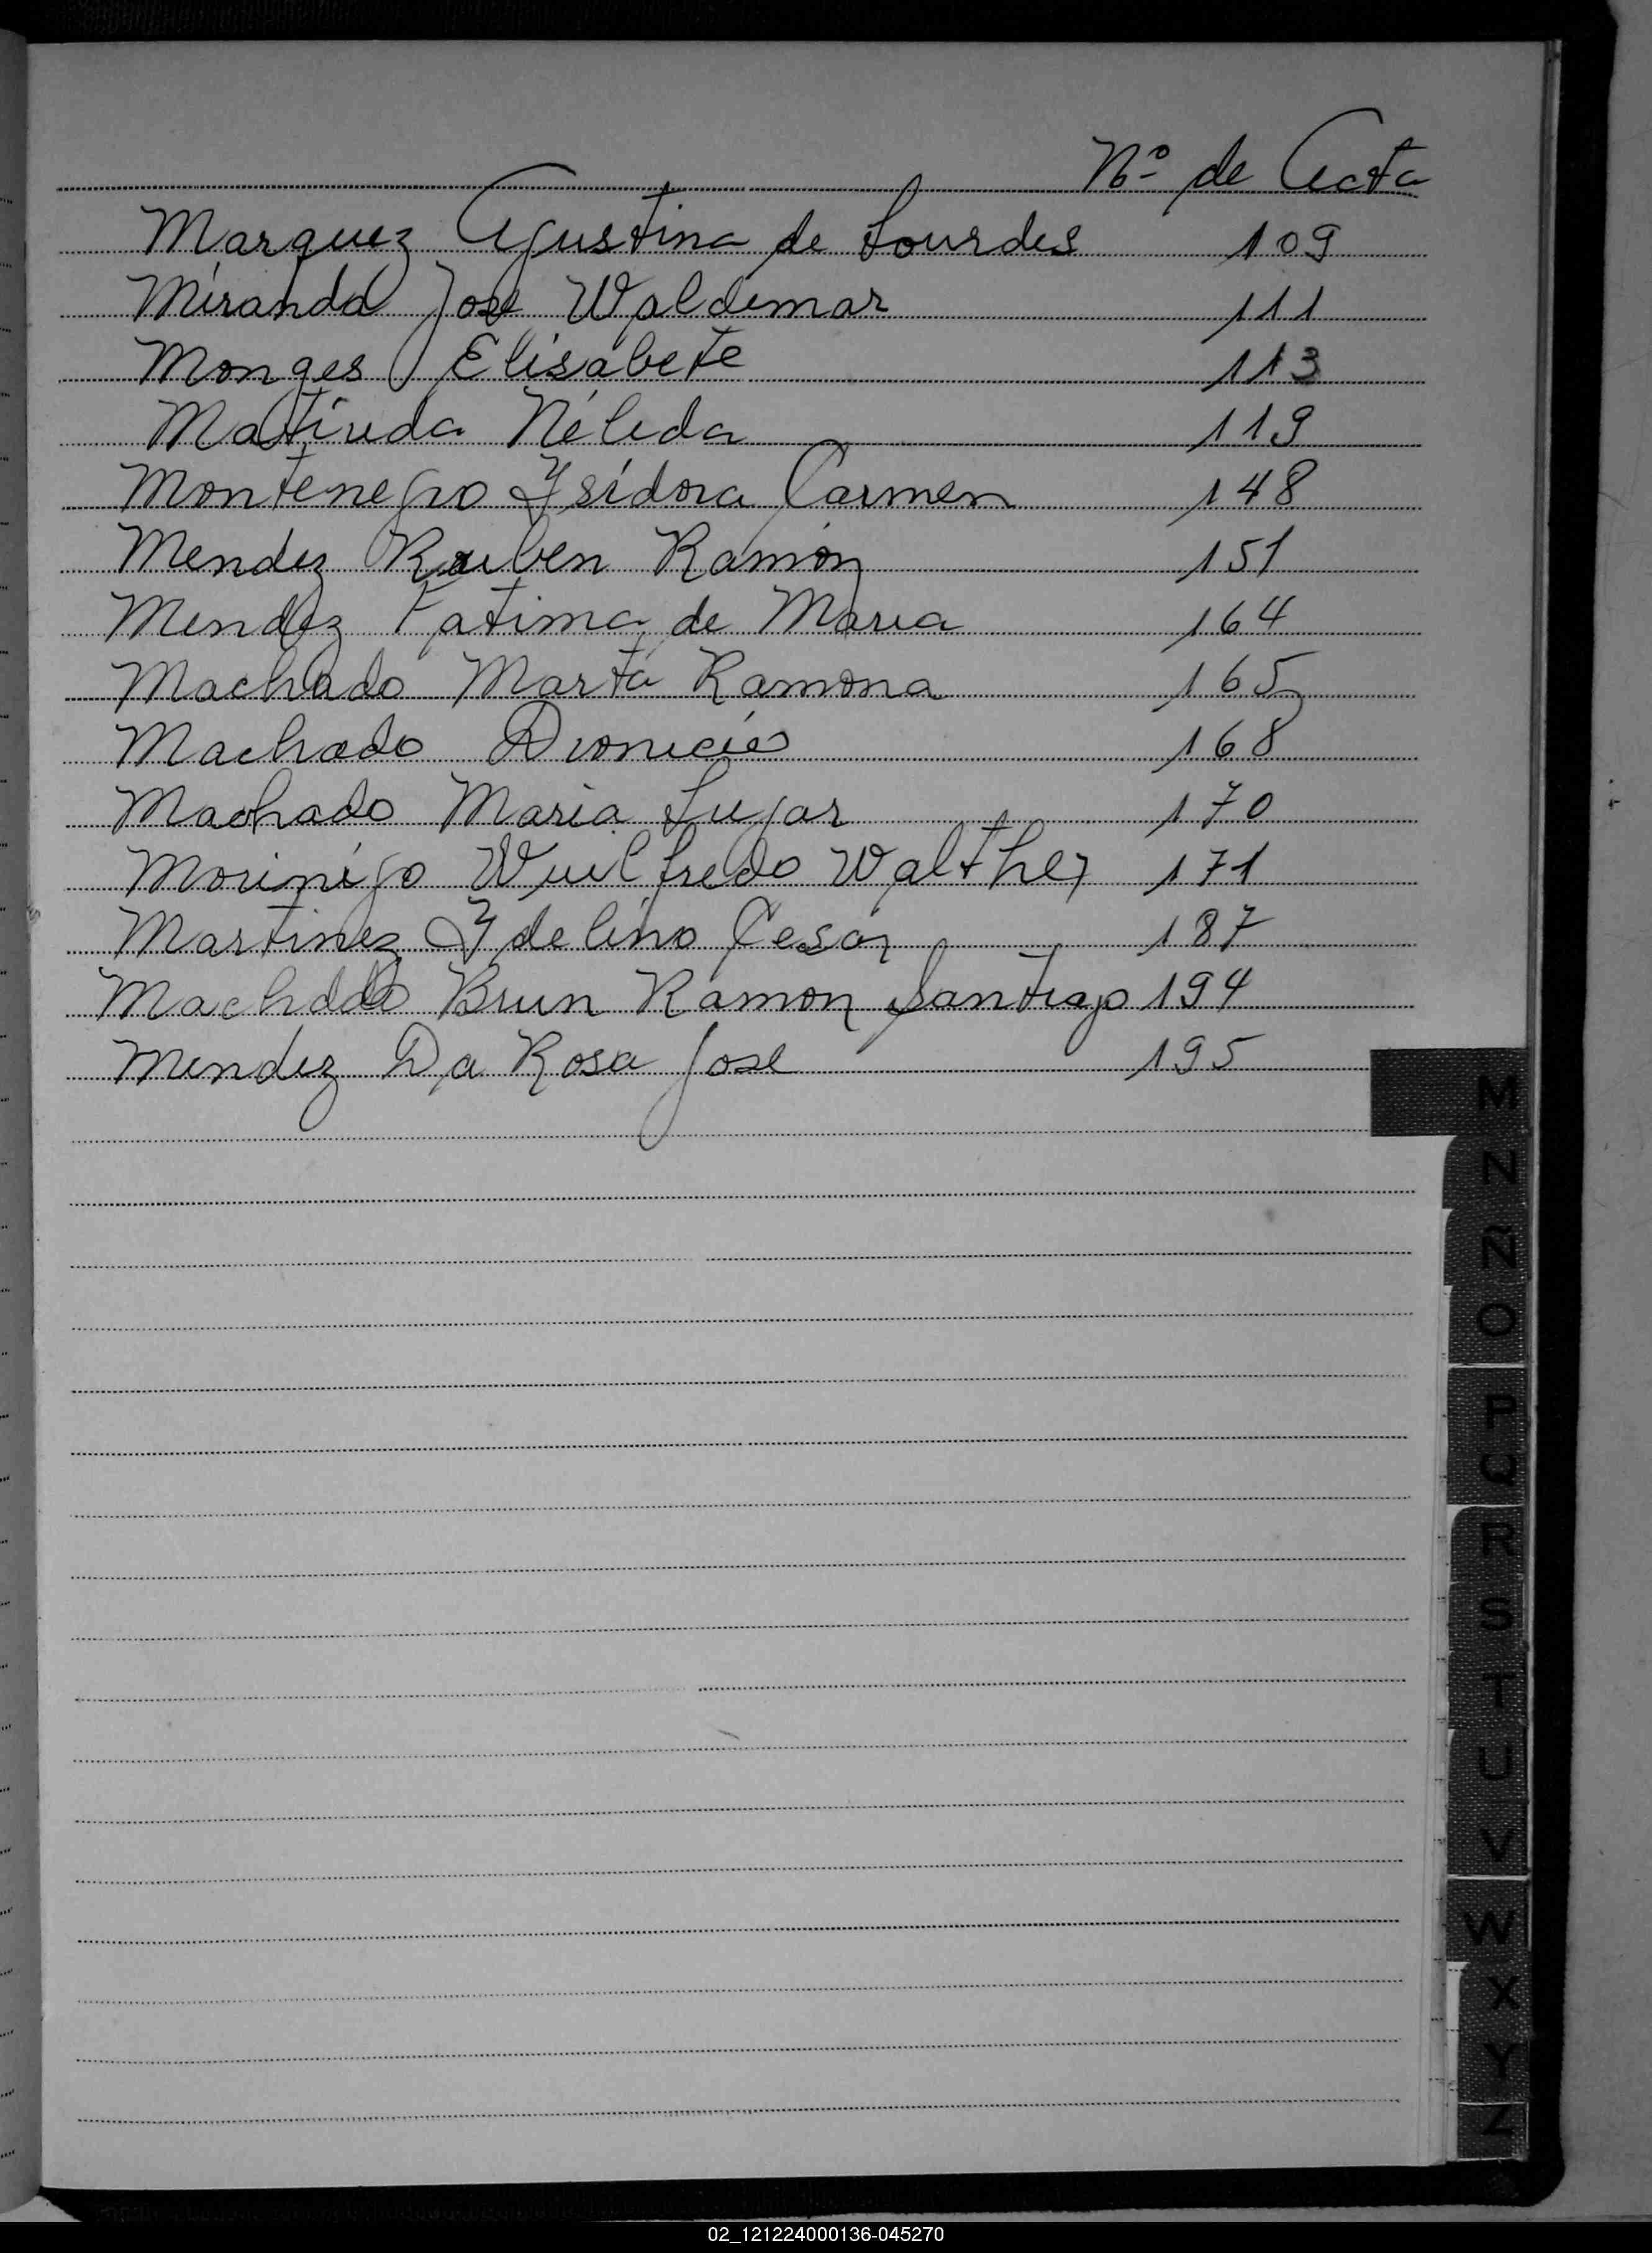 Nº de Acta
Marquez Agustina de Lourdes 109
Miranda Jose Waldemar 111
Monges Elisabete 113
Nélida 119
Montenegro Ysidora Carmen 148
Mendez Ruben Ramón 151
Mendez Fatima de Maria 164
Machado Marta Ramona 165
Machado Dionicio 168
Machado Maria Lujar 170
Morinigo Wuilfredo Walther 171
Martinez Ydelino Cesar 187
Machado Brun Ramon Santiago 194
Mendez Da Rosa Jose 195
M
N
Ñ
O
P
Q
R
S
T
U
V
W
X
Y
Z
02_121224000136-045270